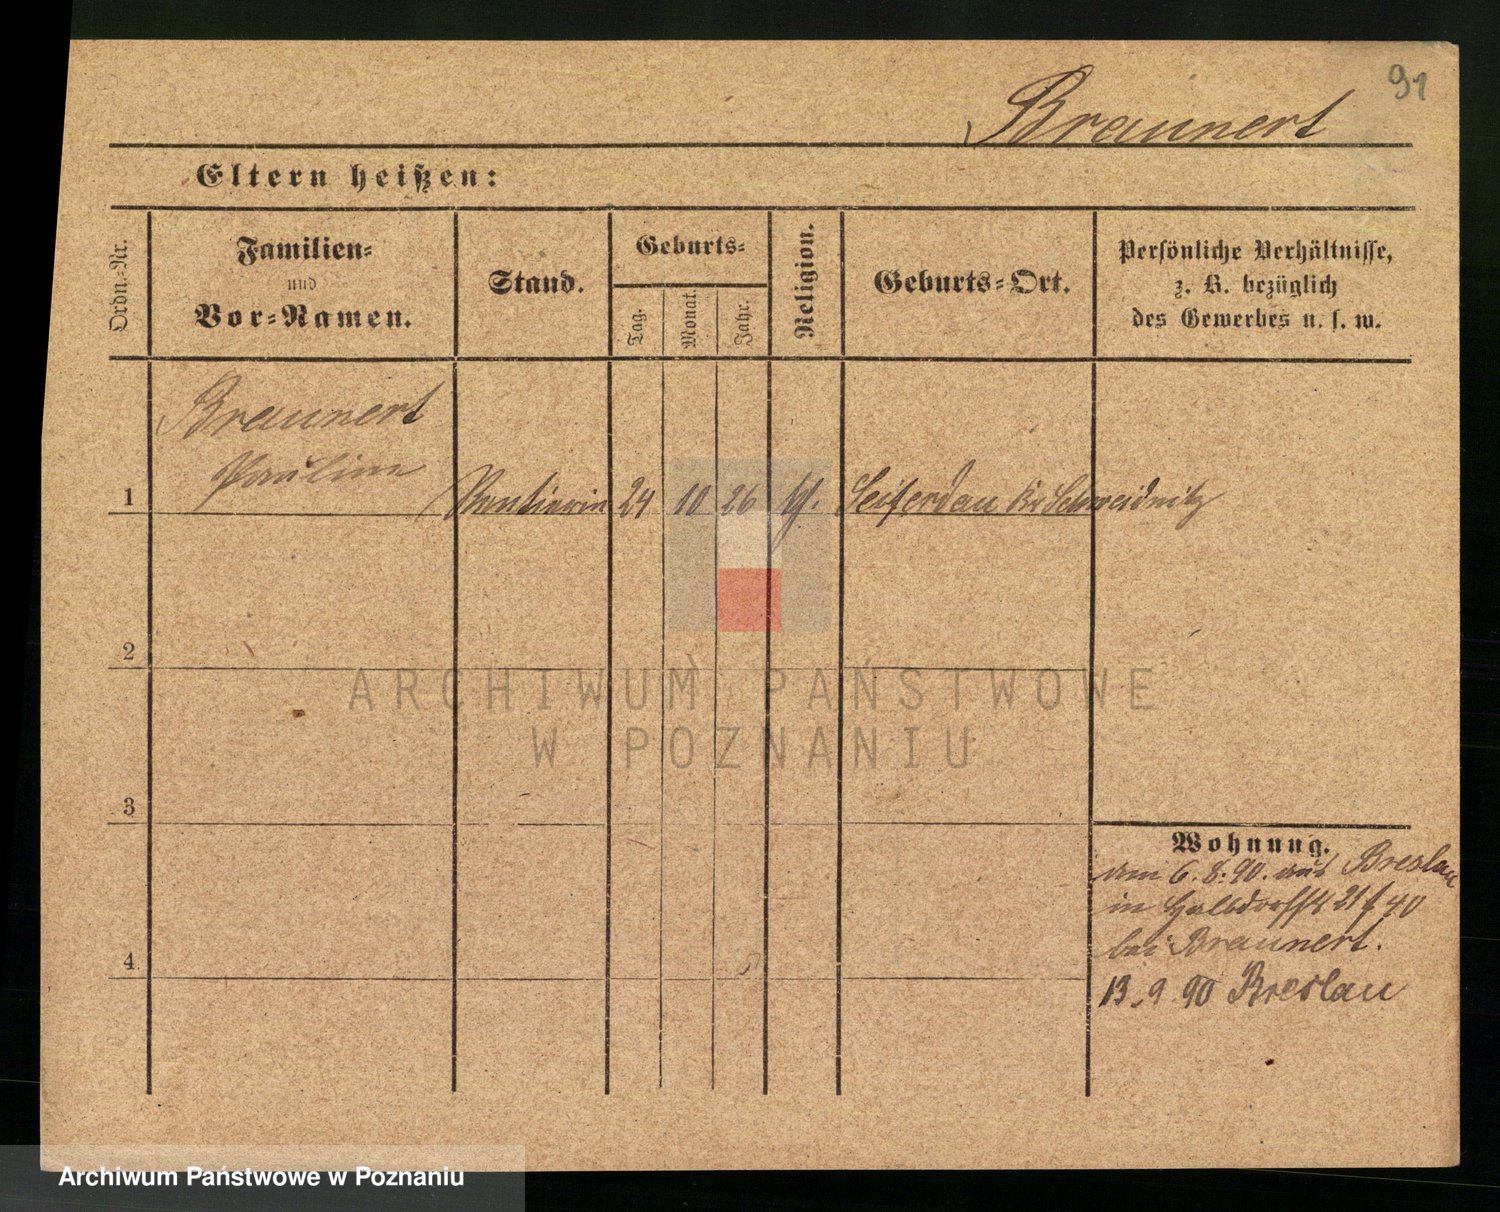 91
Braunert
Eltern heißen:
Ordn.-Nr.
Familien-
und
Vor-Namen.
Stand.
Geburts-
Tag.
Monat.
Jahr.
Religion.
Geburts-Ort.
Persönliche Verhältnisse,
z. B. bezüglich
des Gewerbes u. s. w.
Braunert
Pauline
1 Rentierin 24 10 26 Seiferdau Kr Schweidnitz
2
3
4
Wohnung.
am 6. 8. 90. aus Breslau
in Halbdorfst
bei Braunert.
13. 9. 90 Breslau
ARCHIWUM PAŃSTWOWE
W POZNANIU
Archiwum Państwowe w Poznaniu